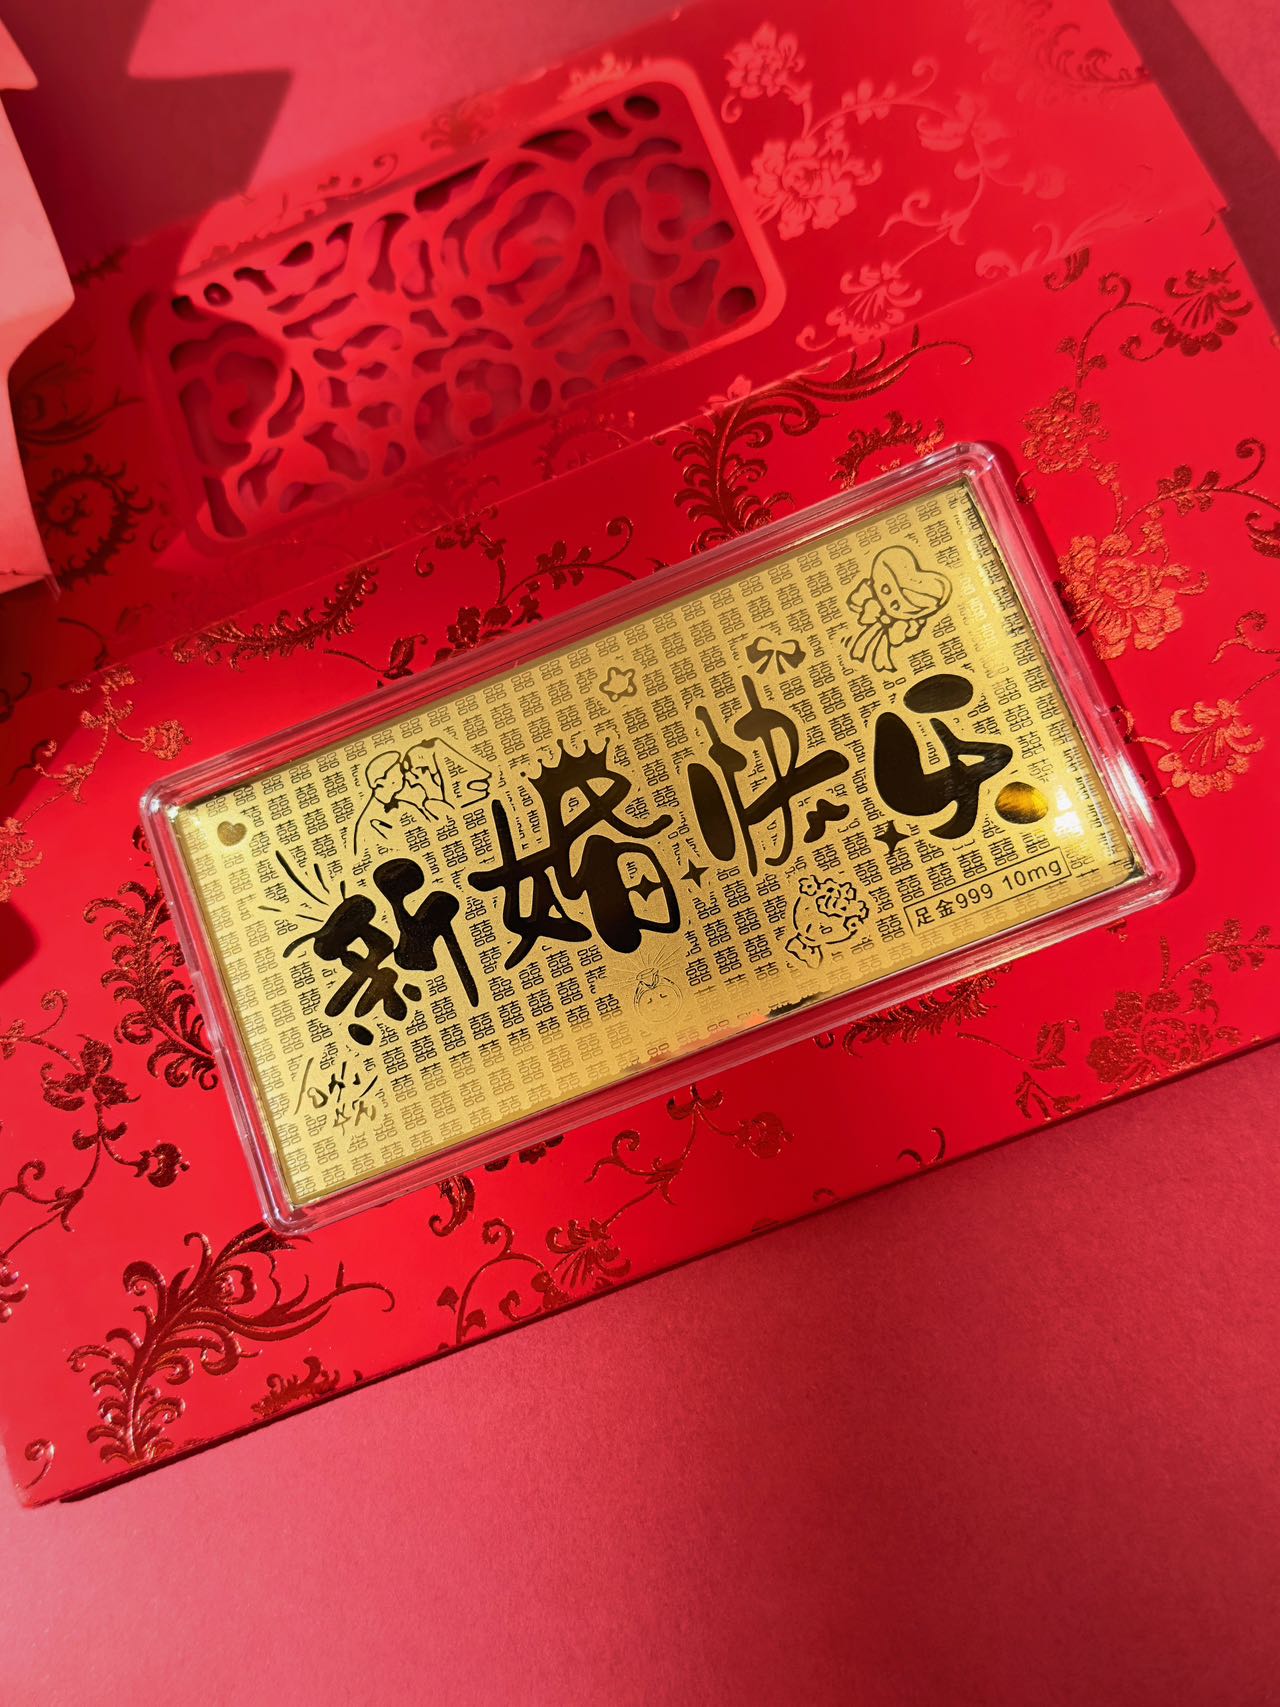 新婚快乐
足金999 10mg